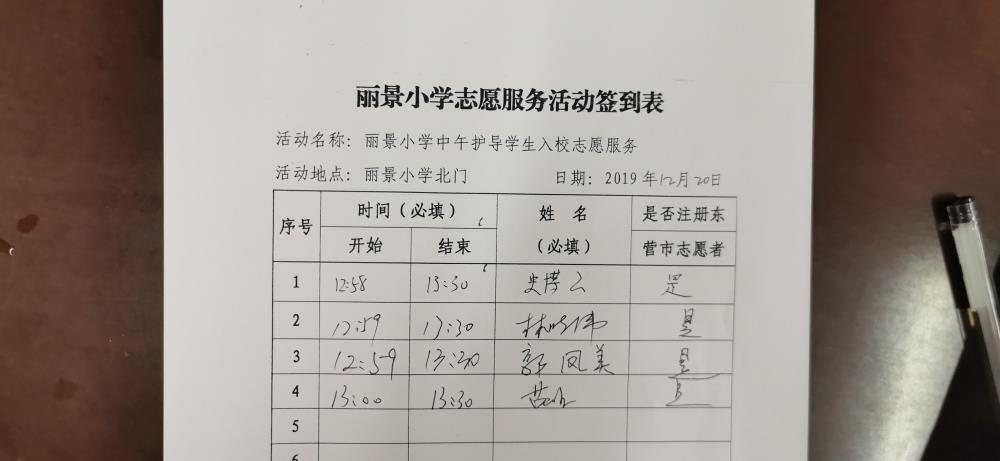 丽景小学志愿服务活动签到表
活动名称：丽景小学中午护导学生入校志愿服务
活动地点：丽景小学北门 日期：2019年12月20日
序号 时间（必填） 姓名（必填） 是否注册东营市志愿者
开始 结束
1 12:58 13:30 史博云 是
2 12:59 13:30 林晓伟 是
3 12:59 13:30 郭凤美 是
4 13:00 13:30
5
6